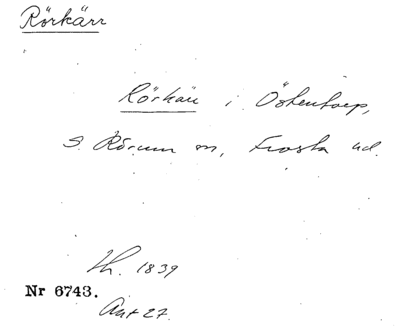 Rörkärr
Rörkärr i Östentorp,
S. Rörum sn, Frosta hd.
Lh. 1839
Nr 6743.
Ant 27.